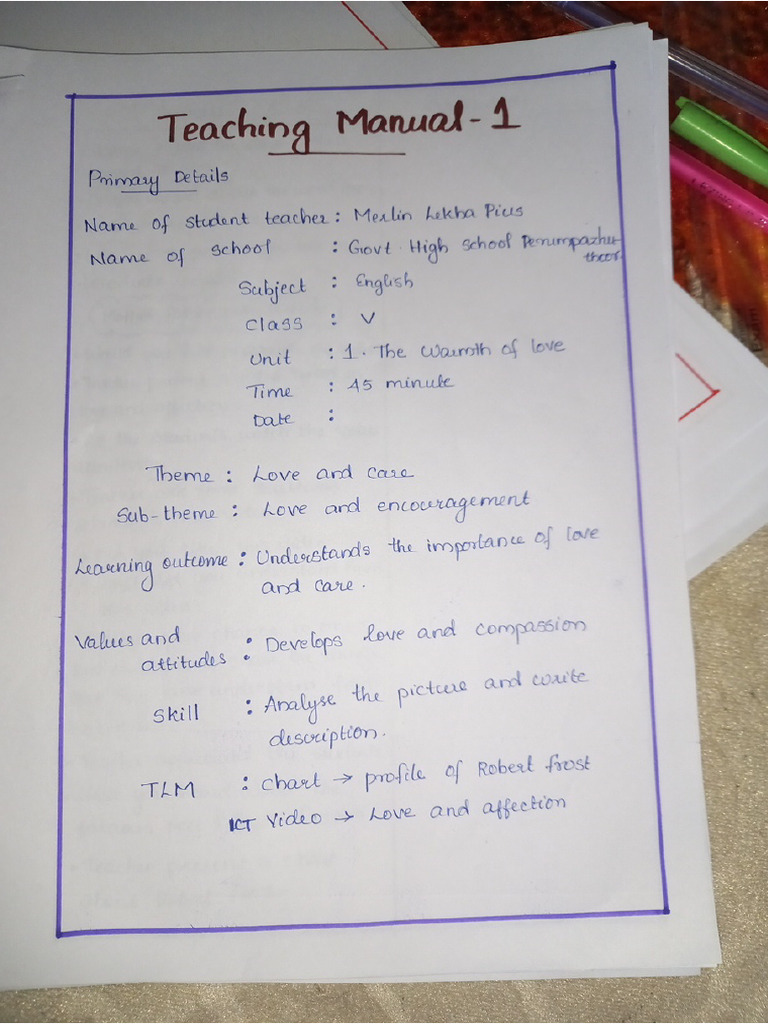 Teaching Manual - 1
Primary Details
Name of student teacher : Merlin Lekha Pius
Name of school : Govt High School Perumpazhu-
theor
Subject : English
Class : V
Unit : 1. The Warmth of love
Time : 45 minute
Date :
Theme : Love and care
Sub-theme : Love and encouragement
Learning outcome : Understands the importance of love
and care.
Values and
attitudes : Develops love and compassion
Skill : Analyse the picture and write
description.
TLM : Chart → profile of Robert frost
ICT Video → Love and affection